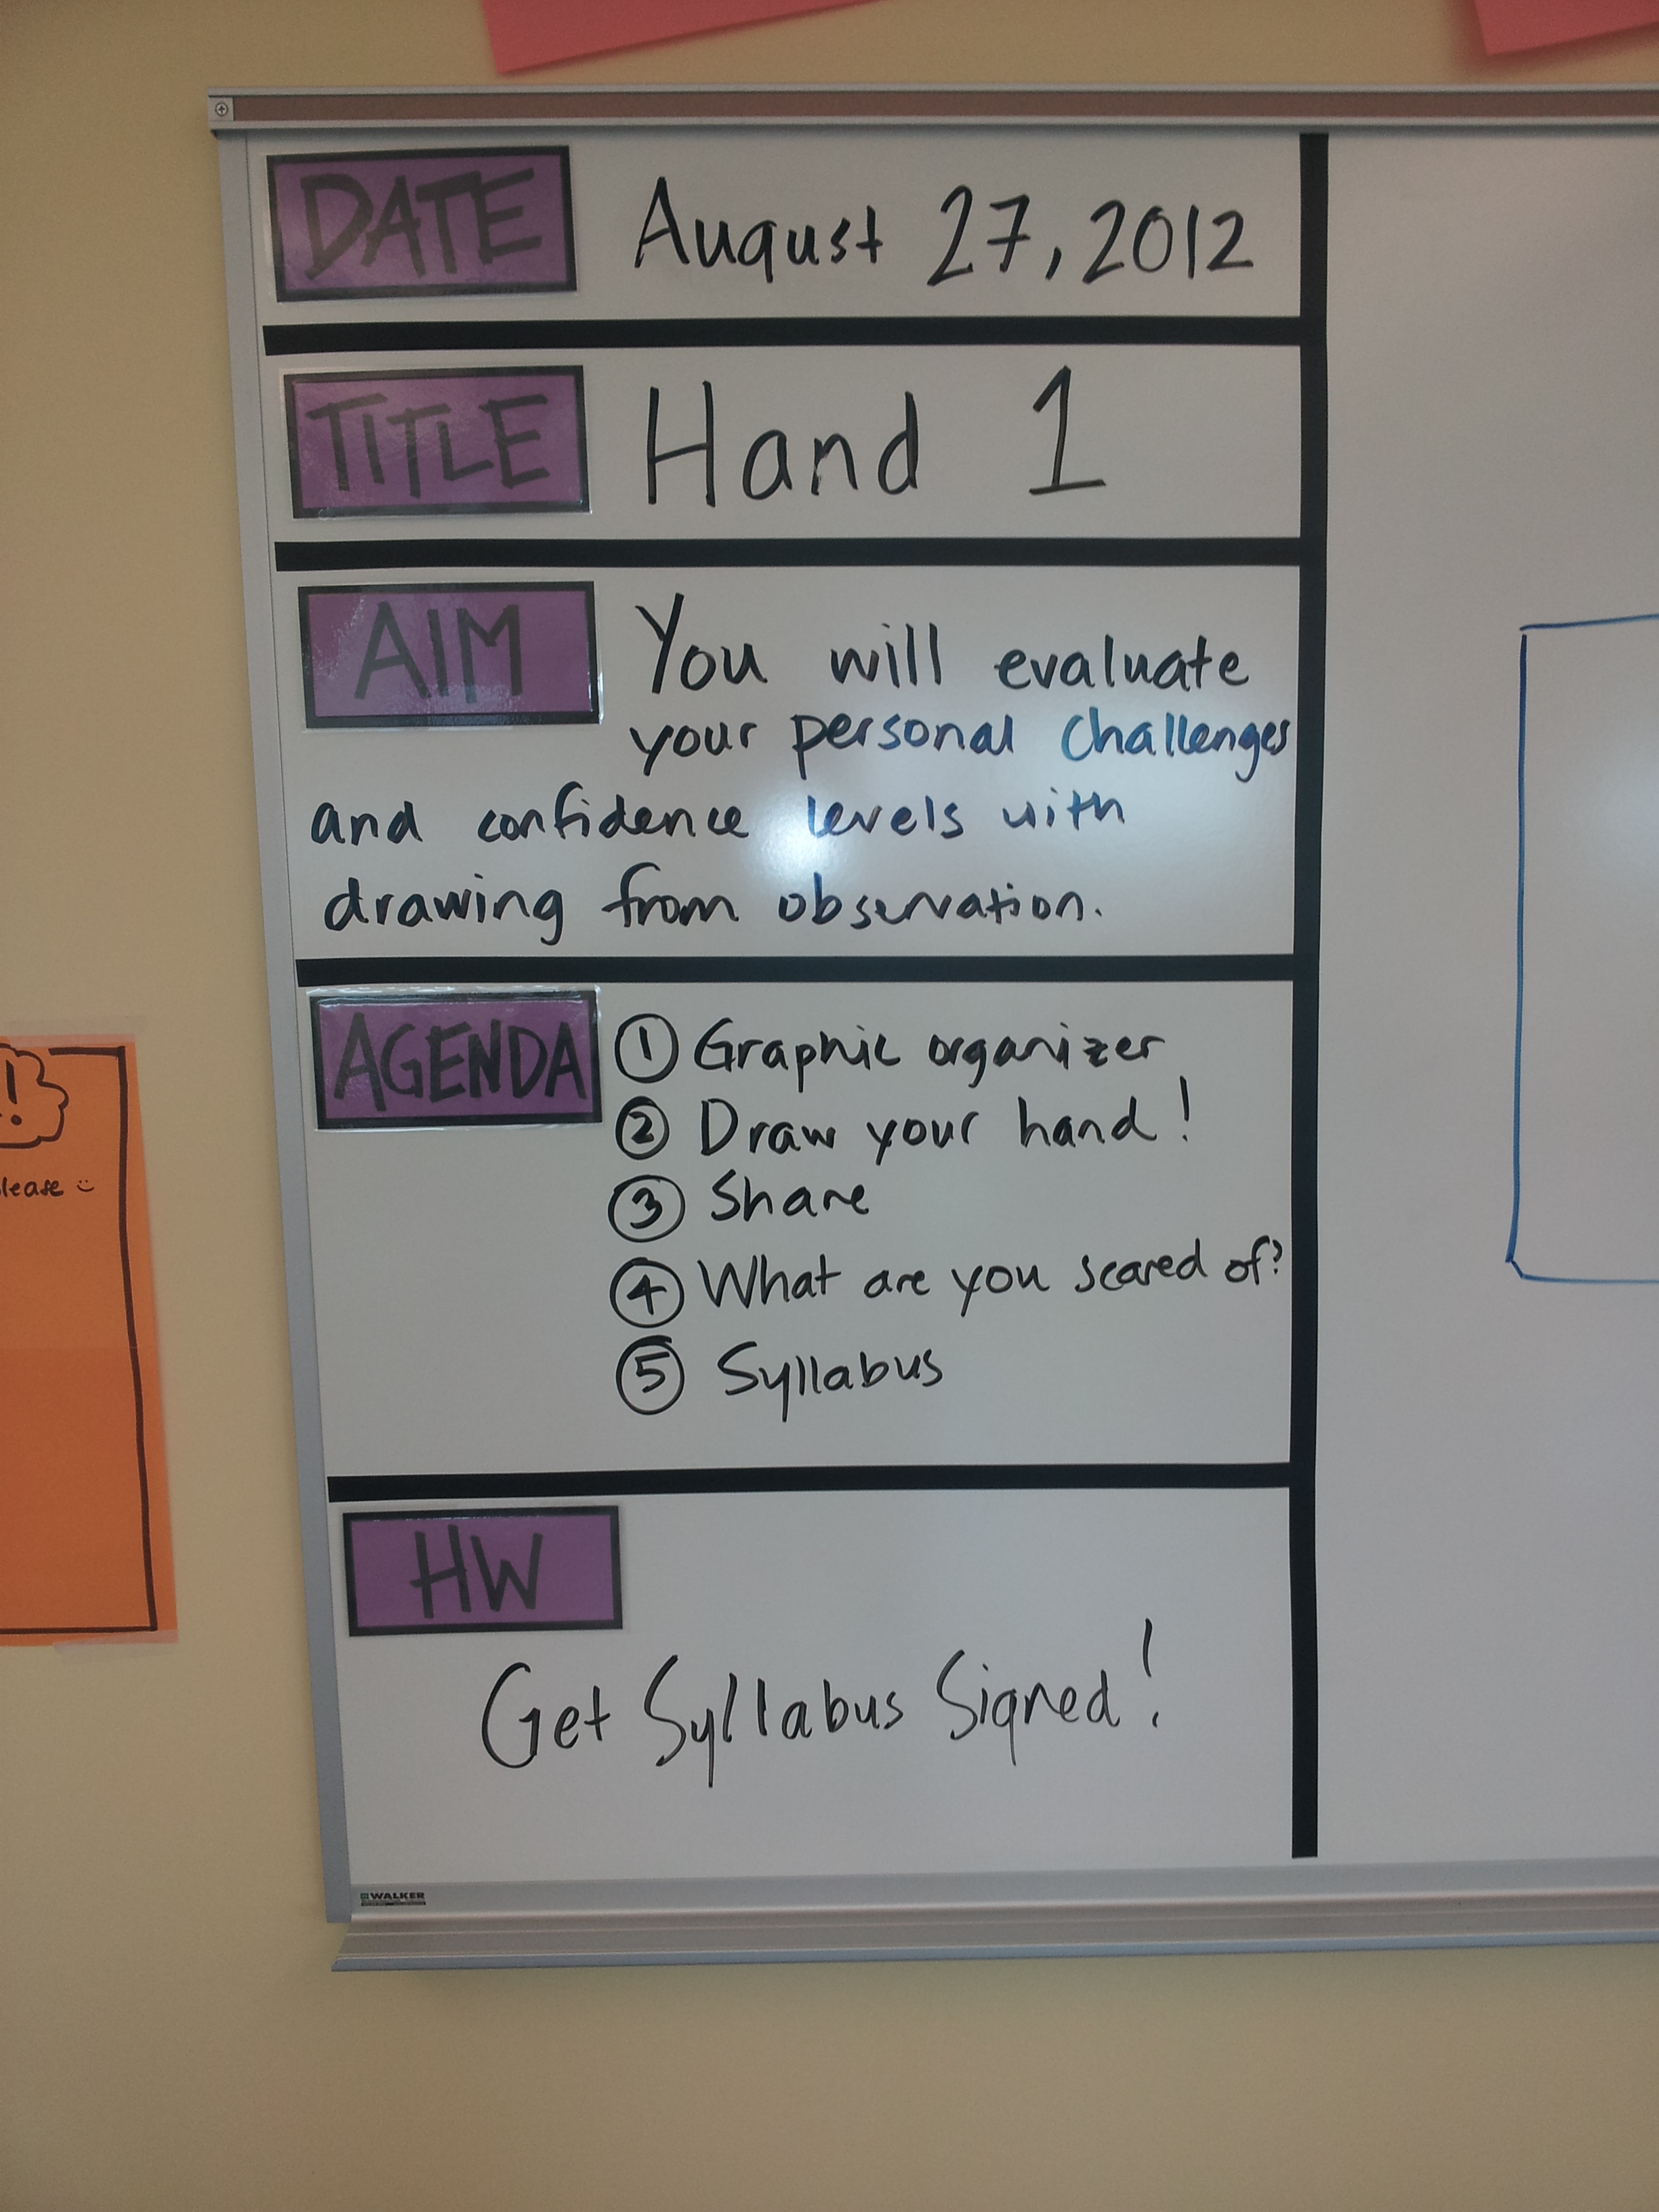 DATE August 27, 2012
TITLE Hand 1
AIM You will evaluate
your personal challenges
and confidence levels with
drawing from observation.
AGENDA
① Graphic organizer
② Draw your hand!
③ Share
④ What are you scared of?
⑤ Syllabus
HW
Get Syllabus Signed!
WALKER
!
lease :)